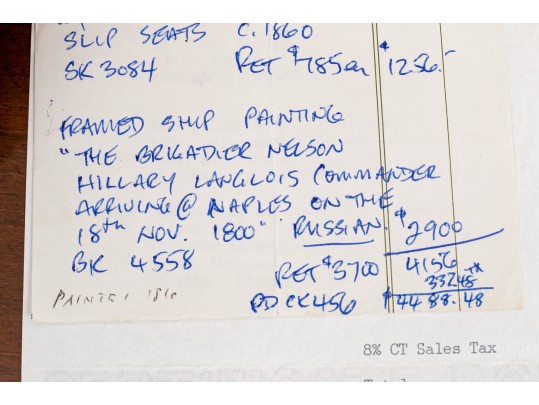 SLIP SEATS C. 1860
SK 3084 RET $785ea $1256.-
FRAMED SHIP PAINTING
"THE BRIGADIER NELSON
HILLARY LANGLOIS COMMANDER
ARRIVING @ NAPLES ON THE
18th NOV. 1800" RUSSIAN. $2900
BK 4558 RET $3700 4156
332.48 TX
PD CK 456 $4488.48
8% CT Sales Tax